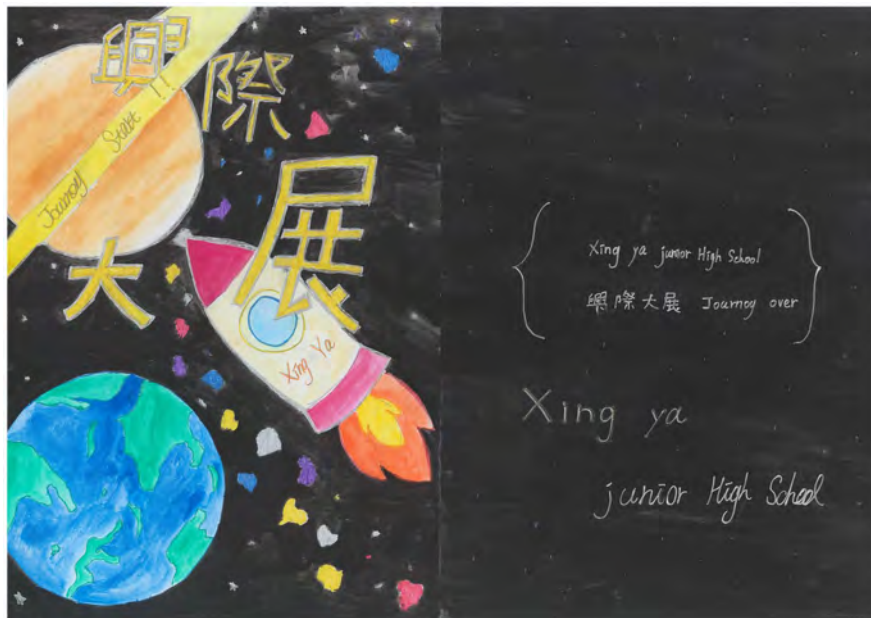 興際
大展
Journey Start !!
Xing Ya
Xing ya junior High School
興際大展 Journey over
Xing ya
junior High School